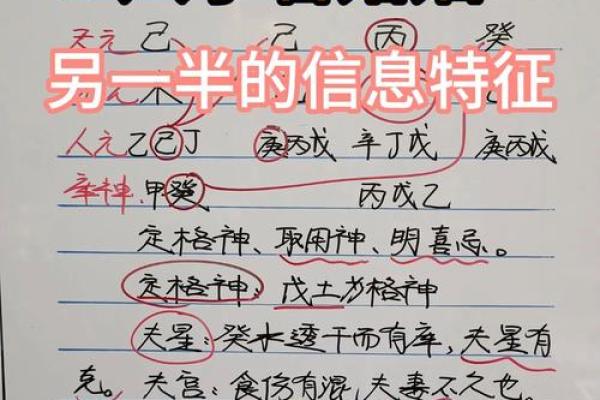 天元 己 己 丙 癸
另一半的信息特征
人元 乙己丁 庚丙戊 辛丁戊 庚丙戊
库神: 甲癸 丙戊乙
定格神、取用神、明喜忌。
定格神: 戊土为格神
夫星: 癸水透干而有库,夫星有
克。夫宫: 食伤有混,夫妻不久也。